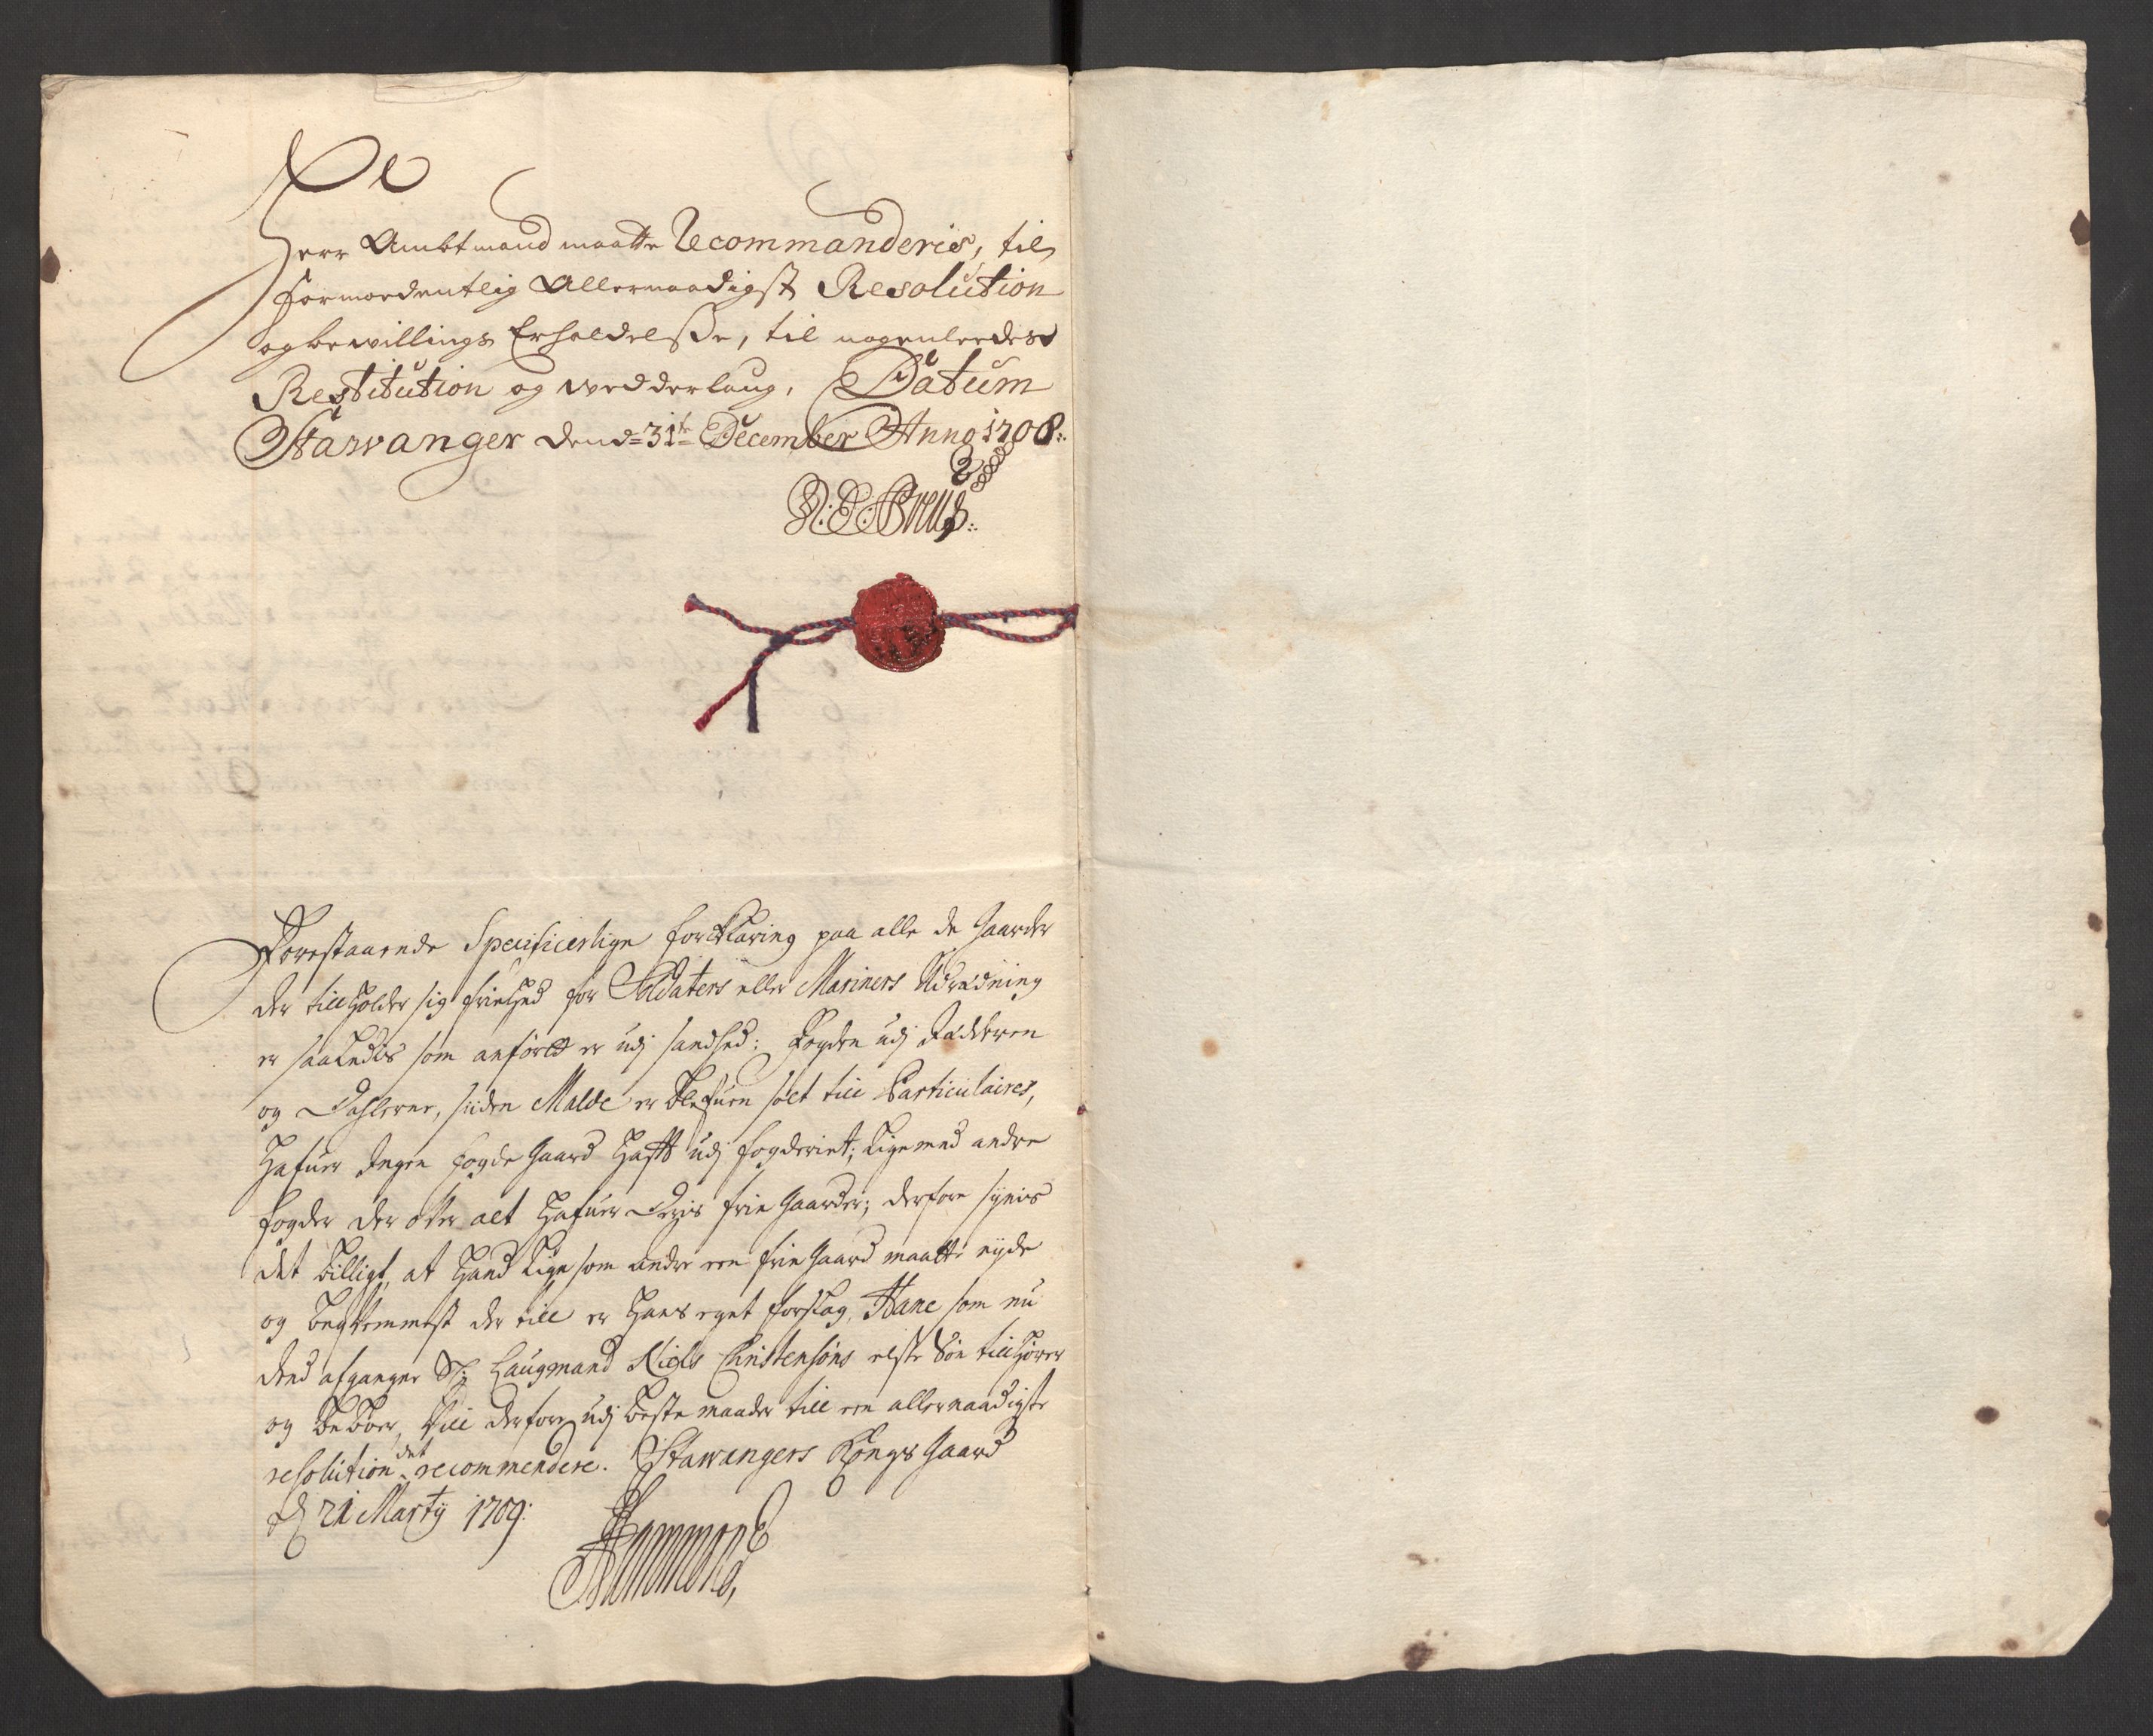 Herr Ambtmand maatte Recommanderis, til
formodentlig Allernaadigst Resolution
og bewillings Erholdelsse, til nogenledes
Restitution og wedderlaug, Datum
Stavanger dend 31te December Anno 1708.
Forestaaende Specificerlige forklaring paa alle de Gaarder
der tillholder sig friehed for Soldaters eller Mariners Udredning
er saaledis som anfört er udj sandhed: Fogden udj Jædderen
og Dahlerne, siiden Malde er blefuen solt till Particulaires,
hafuer Ingen fogde Gaard hafft udj fogderiet; Lige med andre
fogder der ofver alt hafuer Deris frie Gaarder; derfore siynis
det billigt, at hand Lige som andre een frie Gaard maatte nyde
og beqvemmest der till er hans eget forslag, Hane som nu
dend afgangne Sl: Laugmand Niels Christensöns elste Sön tillhörer
og beboer, Vill derfore udj beste maader till een allernaadigste
resolution det recommendere. Stavangers Kongs Gaard
d 21 Marty 1709:
Hammond,